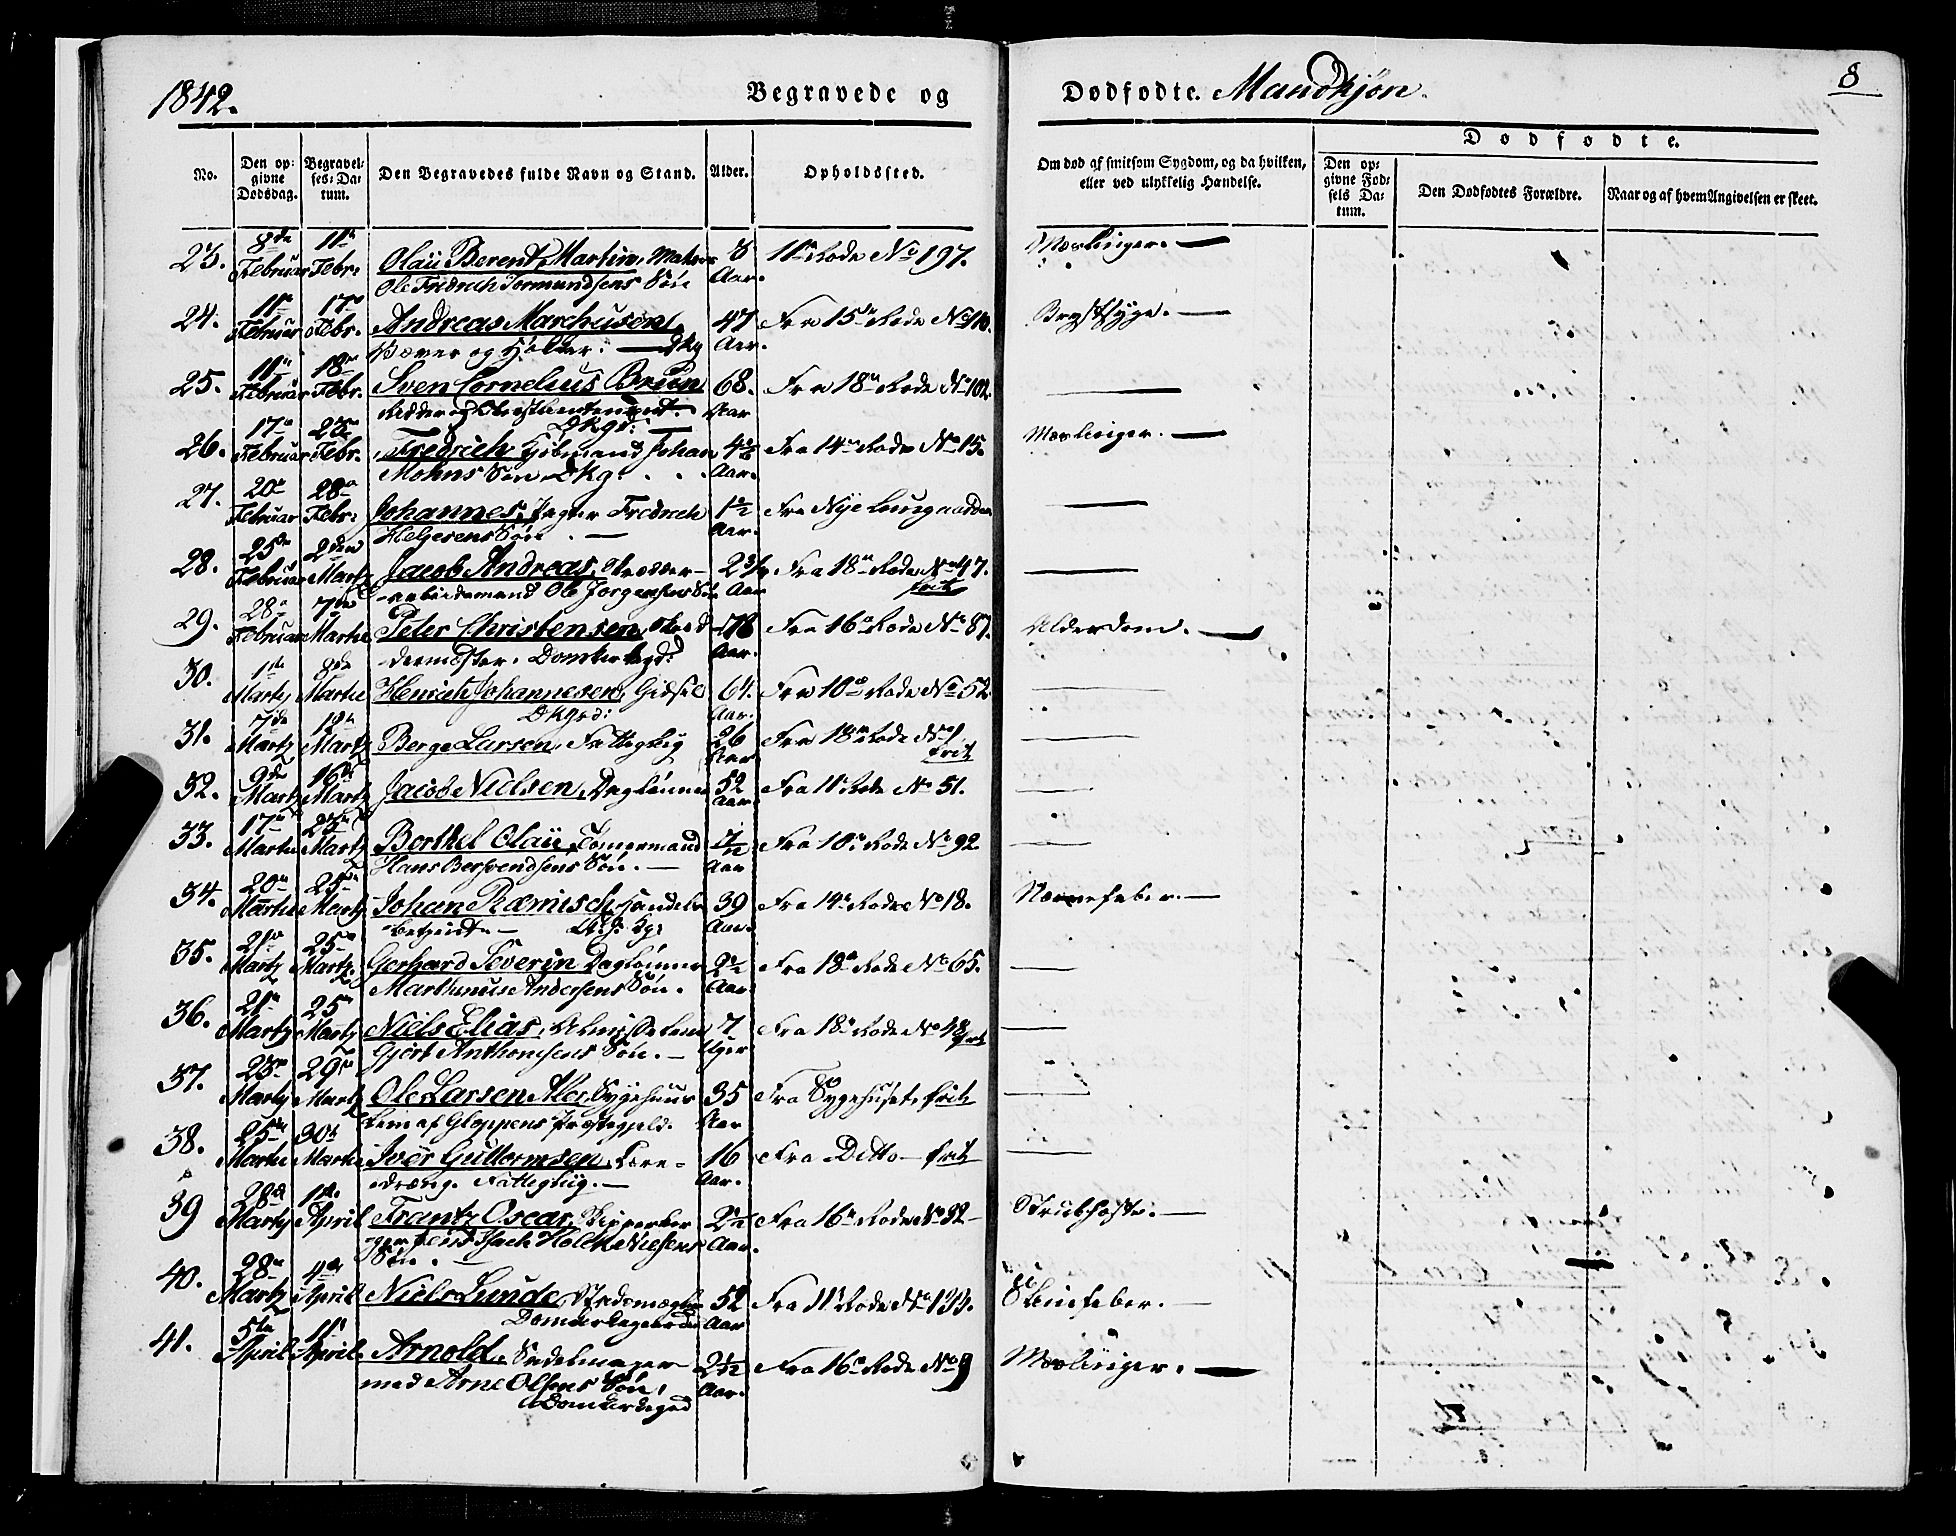 1842.
Begravede og
Dødfødte. Mandkjøn.
8
No.
Den opgivne Dødsdag.
Begravelses-Datum.
Den Begravedes fulde Navn og Stand.
Alder.
Opholdssted.
Om død af smitsom Sygdom, og da hvilken, eller ved ulykkelig Hændelse.
Dødfødte.
Den opgivne Fødsels Datum.
Den Dødfødtes Forældre.
Naar og af hvem Angivelsen er skeet.
23. 8de Februar 11te Febr: Olaü Berent Martin, 3 Aar. 11te Rode No 197. Mæslinger.
Ole Fredrich Tormundsens Søn
24. 11te Februar 17de Febr. Andreas Marchusen, 47 Aar. Fra 15de Rode Brystsyge.
25. 11te Februar 18de Febr. Sven Cornelius Brun, 68. Aar Fra 18de Rode No 102.
26. 17de Februar 23de Febr. Fredrich, Johan Fra 14de Rode No 15. Mæslinger.
Mohns Søn DKg.
27. 20de Februar 28de Febr: Johannes, Fredrich Aar. Fra Nye
Helgesens Søn
28. 25de Februar 2den Martz Jacob Andreas, Aar Fra 18de Rode No 47. frit
arbeidsmand Ole Jørgensens Søn
29. 28de Februar 7de Martz Peter Christensen, 78 Aar. Fra 16de Rode No 87. Alderdom.
dermester. Domkirkegd:
30. 1ste Martz 8de Martz Henrich Johannesen, 64. Aar. Fra 10de Rode No 52.
DKgrd:
31. 7de Martz Martz Berge Larsen, Fattiglig 26 Aar Fra 18de Rode frit
32. 9de Martz 16de Martz Jacob Nielsen, Daglønner 52 Aar. Fra 11te Rode No 51.
33. 17de Martz 23de Martz Berthel Olaii, Tømmermand Aar Fra 10de Rode No 92
Hans Søn.
34. 20de Martz 25de Martz Johan Handels 39 Aar. Fra 14de Rode No 18. Nervefeber.
betjent.
35. 21de Martz 25de Martz. Gerhard Severin, Daglønner Aar. Fra 18de Rode No 65.
Marthinus Andersens Søn.
36. 21de Martz 25de Martz Niels Elias, 7 Uger Fra 18de Rode No 48 frit
Gjert Anthonisens Søn.
37. 23de Martz 29de Martz Ole Larsen Sygehuus 35 Aar Fra Sygehuset, frit
Lem af Gloppens Præstegjeld.
38. 25de Martz 30te Martz Iver Guttormsen, Lære- 16 Aar. Fra Ditto frit
dreng. Fattiglig.
39 28de Martz 1ste April Frantz Oscar, Aar. Fra 16de Rode No 32 Strubhoste.
Holck Nielsens
Søn.
40. 28de Martz 4de April Niels Lunde, 52 Aar Fra 11te Rode Sliimfeber.
Domkirkegaarden
41. 5te April 11te April. Arnold, Sadelmager Aar. Fra 16de Rode No 9 Mæslinger.
med Arne Olsens Søn,
Domkirkegrd